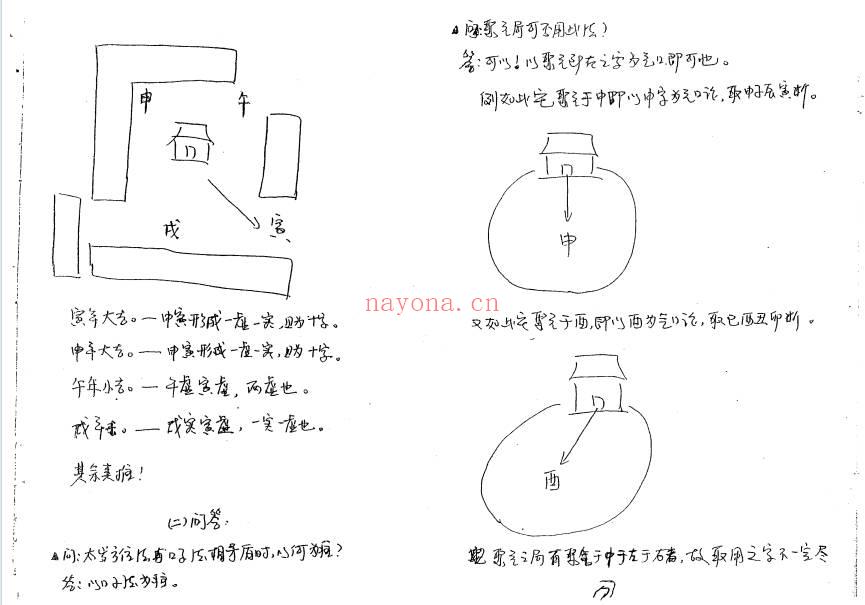 申
午
戌
寅
寅年大吉。— 申寅形成一虚一实,
申年大吉。— 申寅形成一虚一实,
午年小吉。— 午虚寅虚,两虚也。
戌年 — 戌实寅虚,一实一虚也。
其余类推!
(二)问答:
▲问:太岁方位法 法相矛盾时,以何为准?
答:以 法为准。
▲问:聚气局可否用此法?
答:可以!以聚气即在之字为气口即可也。
例如此宅聚气于申即以申字为气口论,取申子辰寅断。
申
nayona.cn
又如此宅聚气于酉,即以酉为气口论,取巳酉丑卯断。
酉
聚气之局有聚气于中于左于右者,故取用之字不一定尽
同